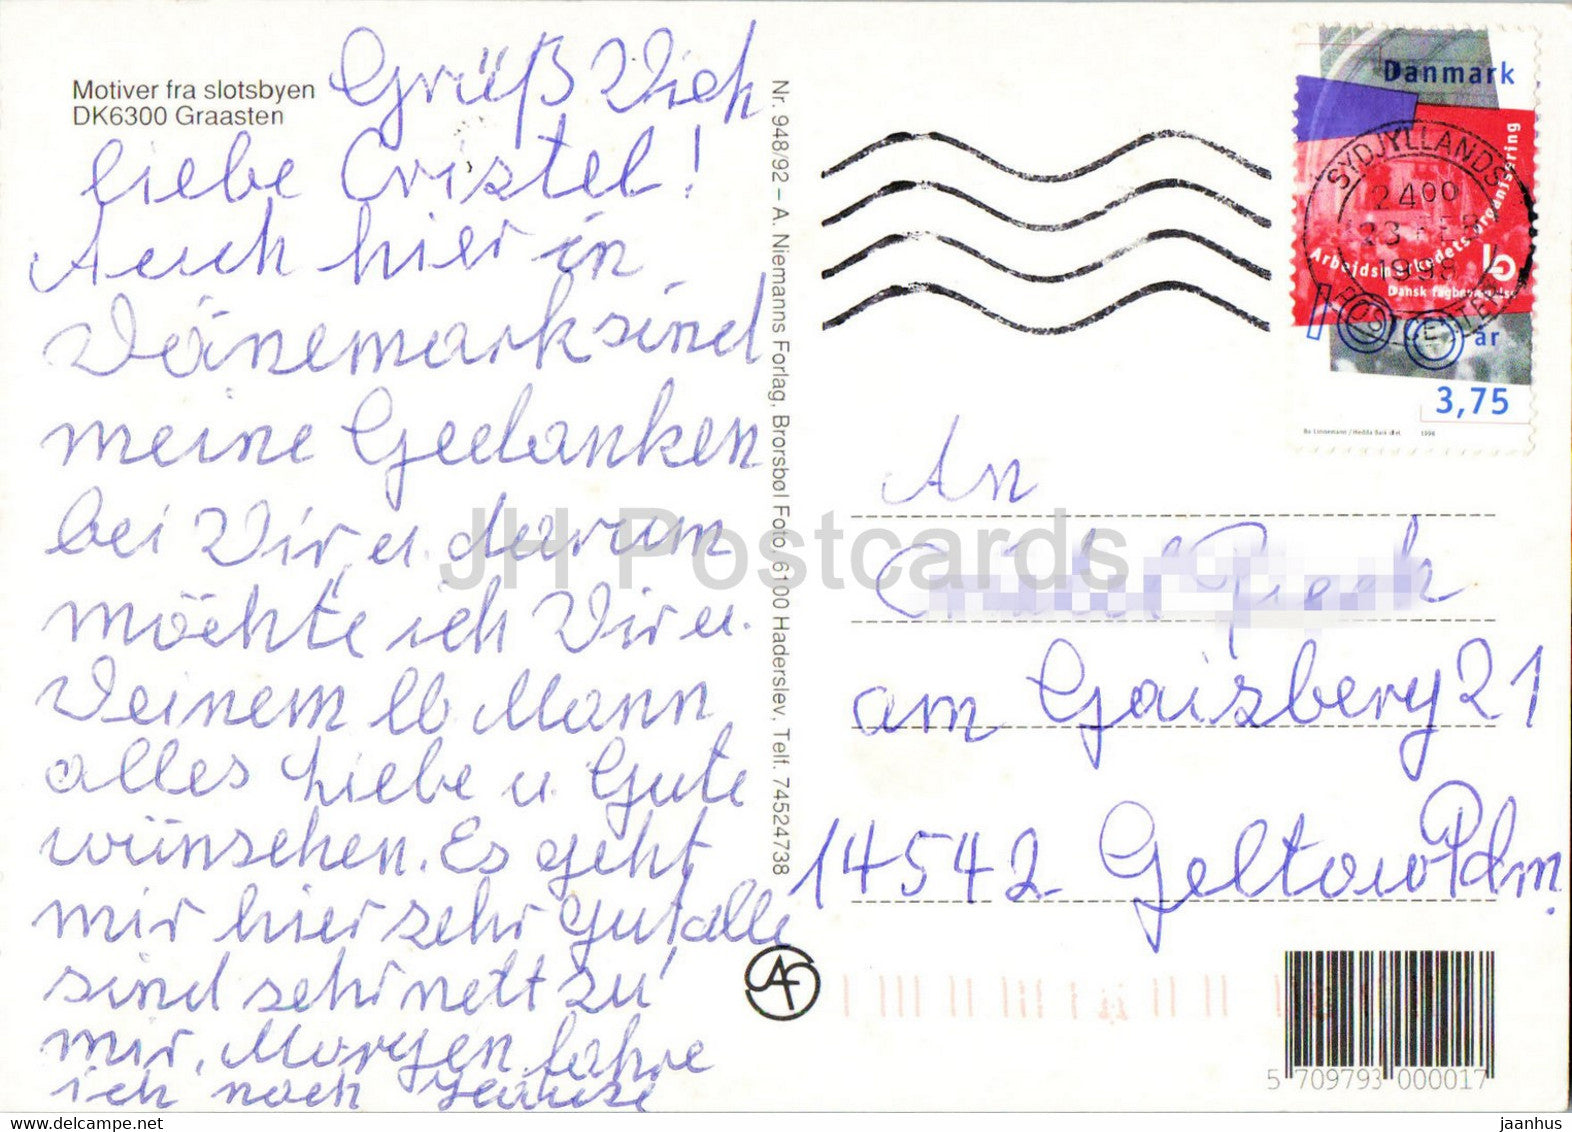 Motiver fra slotsbyen
DK6300 Graasten
Grüß Dich
liebe Cristel!
Auch hier in
Dänemark sind
meine Gedanken
bei Dir u. darum
möchte ich Dir u.
Deinem lb Mann
alles Liebe u Gute
wünschen. Es geht
mir hier sehr gut, alle
sind sehr nett zu
mir. Morgen fahre
ich noch Hause
Nr. 948/92 – A. Niemanns Forlag, Brorsbøl Foto, 6100 Haderslev. Telf. 74524738
Danmark
Arbejdsmarkedets organisering
Dansk fagbevægelse
100 år
3,75
Bo Linnemann / Hedda Bank del. 1998
SYDJYLLANDS
2400
23 FEB
1998
POSTCENTER
An
am Gaisberg 21
14542 Geltow Pdm.
JH Postcards
AF
5 709793 000017
www.delcampe.net
jaanhus